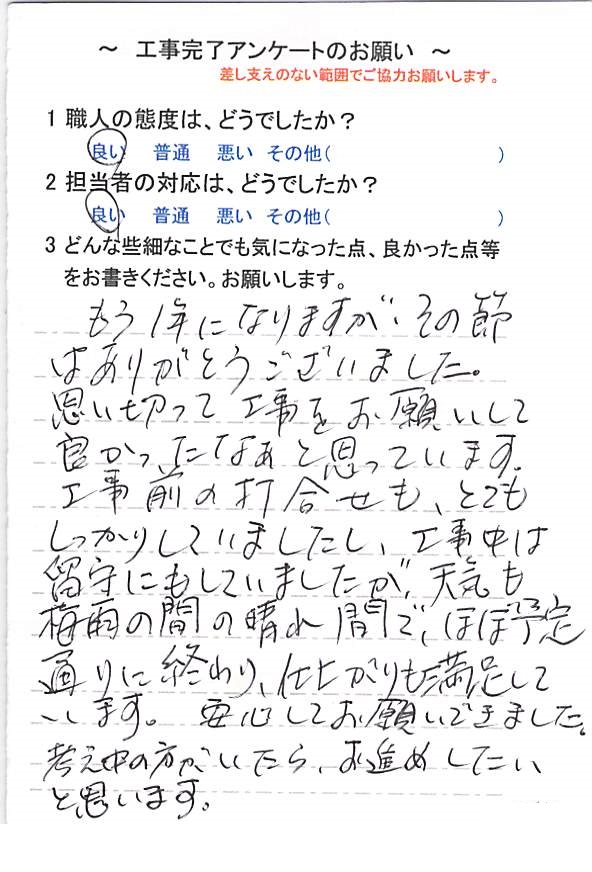 ～ 工事完了アンケートのお願い ～
差し支えのない範囲でご協力お願いします。
1 職人の態度は、どうでしたか？
良い 普通 悪い その他( )
2 担当者の対応は、どうでしたか？
良い 普通 悪い その他( )
3 どんな些細なことでも気になった点、良かった点等
をお書きください。お願いします。
もう1年になりますが、その節
はありがとうございました。
思い切って工事をお願いして
良かったなぁと思っています。
工事前の打合せも、とても
しっかりしていましたし、工事中は
留守にもしていましたが、天気も
梅雨の間の晴れ間で、ほぼ予定
通りに終わり、仕上がりも満足して
います。安心してお願いできました。
考え中の方がいたら、お進めしたい
と思います。